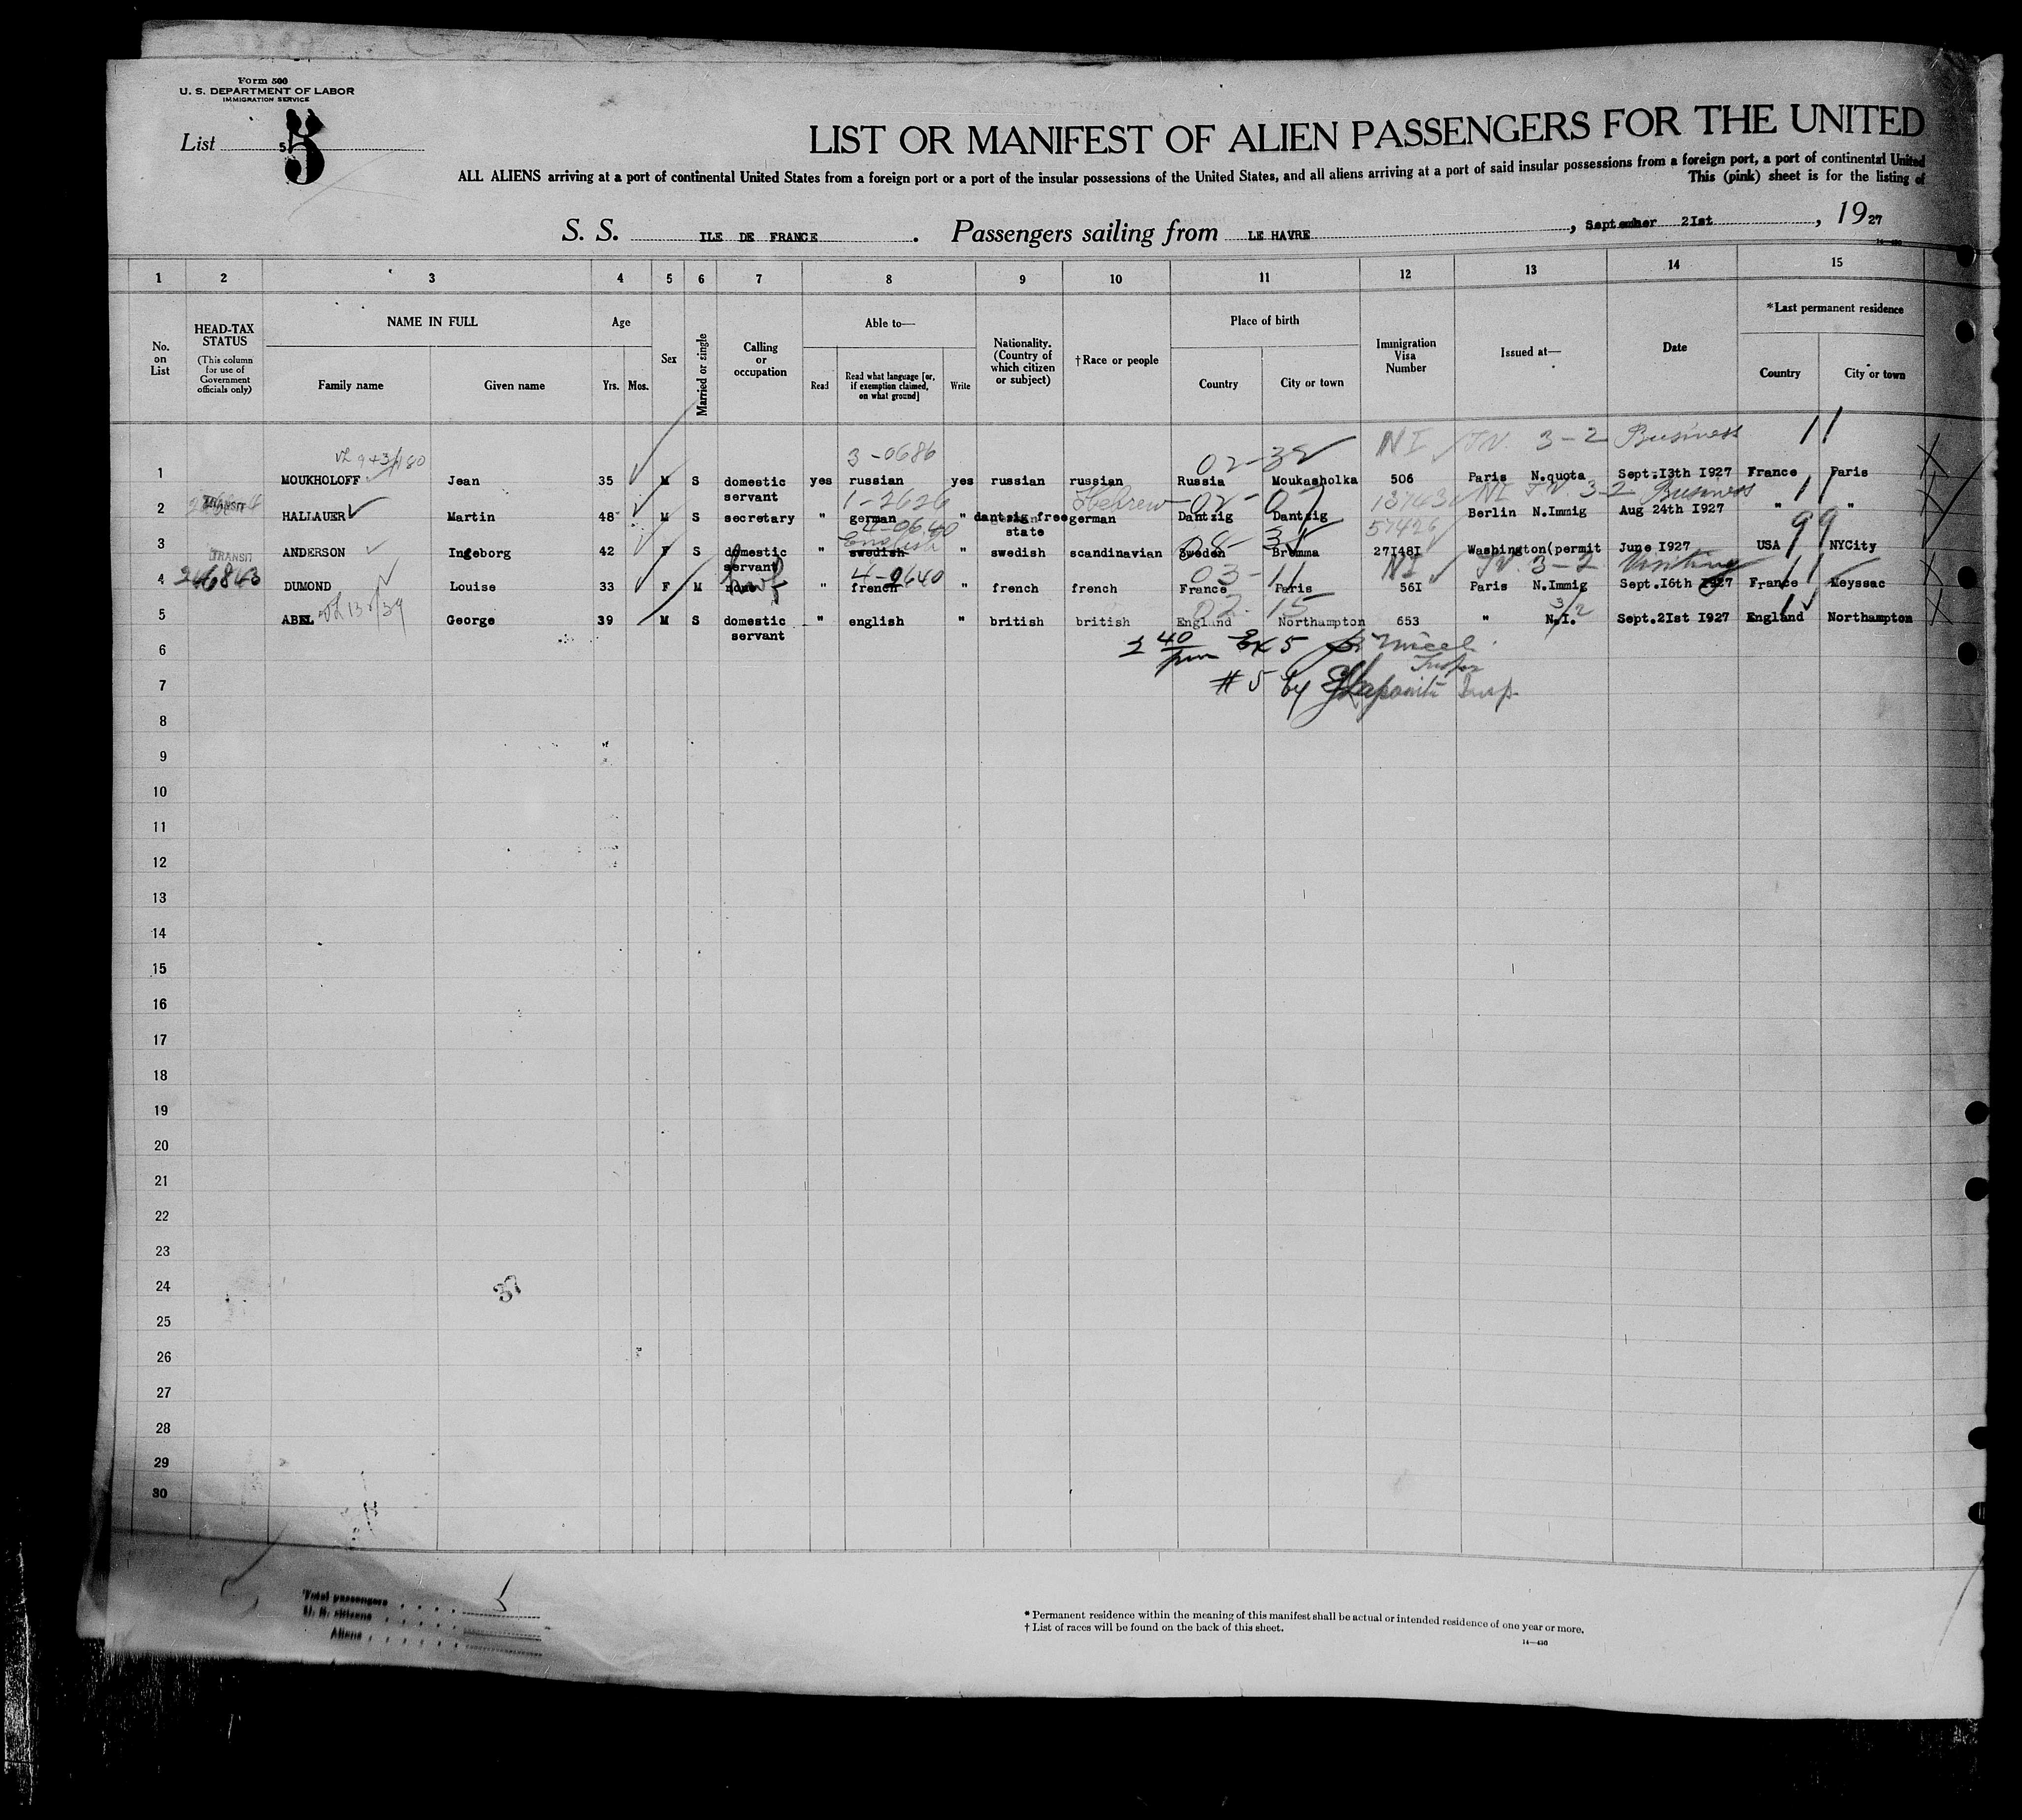 Form 500
U. S. DEPARTMENT OF LABOR
IMMIGRATION SERVICE
List 5 5
LIST OR MANIFEST OF ALIEN PASSENGERS FOR THE UNITED
ALL ALIENS arriving at a port of continental United States from a foreign port or a port of the insular possessions of the United States, and all aliens arriving at a port of said insular possessions from a foreign port, a port of continental United
This (pink) sheet is for the listing of
S. S. ILE DE FRANCE . Passengers sailing from LE HAVRE , September 2Ist , 1927
14—430
1 2 3 4 5 6 7 8 9 10 11 12 13 14 15
No. on List
HEAD-TAX STATUS (This column for use of Government officials only)
NAME IN FULL
Family name Given name
Age
Yrs. Mos.
Sex
Married or single
Calling or occupation
Able to—
Read
Read what language [or, if exemption claimed, on what ground]
Write
Nationality. (Country of which citizen or subject)
†Race or people
Place of birth
Country City or town
Immigration Visa Number
Issued at—
Date
*Last permanent residence
Country City or town
3-0686 02-32 NI TV. 3-2 Business 11
1 MOUKHOLOFF Jean 35 M S domestic servant yes russian yes russian russian Russia Moukasholka 506 Paris N.quota Sept.I3th I927 France Paris
TRANSIT 1-2626 Hebrew 02-07 137431 NI TV 3-2 Business 11
2 HALLAUER Martin 48 M S secretary " german " dantzig free state german Dantzig Dantzig Berlin N.Immig Aug 24th I927 " "
4-0640 English 57426 99
3 TRANSIT ANDERSON Ingeborg 42 F S domestic servant " swedish " swedish scandinavian Sweden Bromma 27I48I Washington(permit June I927 USA NYCity
246843 4-2640 03-11 NI TV. 3-2 Visiting 11
4 DUMOND Louise 33 F M none hwf " french " french french France Paris 56I Paris N.Immig Sept.I6th I927 France Meyssac
02-15 3/2
5 ABEL George 39 M S domestic servant " english " british british England Northampton 653 " N.I. Sept.2Ist I927 England Northampton
6
7 #5 by Insp.
8
9
10
11
12
13
14
15
16
17
18
19
20
21
22
23
24 37
25
26
27
28
29
30
Total passengers 5
U. S. citizens
Aliens
* Permanent residence within the meaning of this manifest shall be actual or intended residence of one year or more.
† List of races will be found on the back of this sheet.
14—430